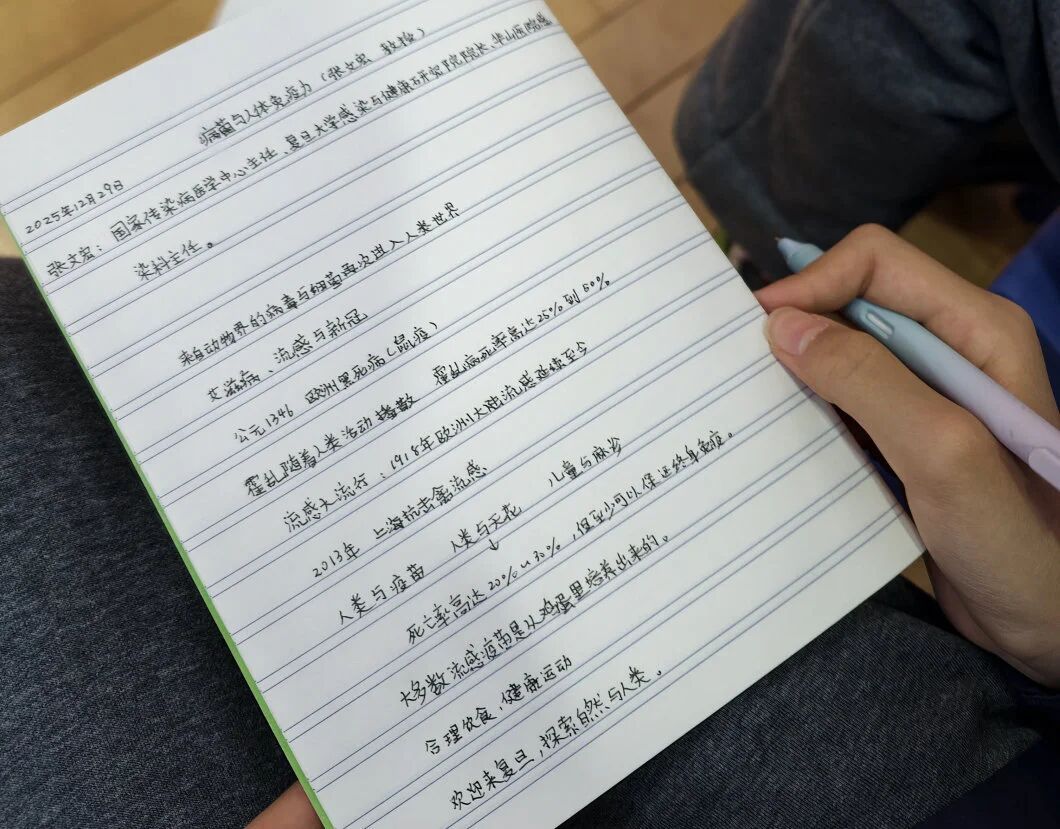 病菌与人体免疫力（张文宏 教授）
2025年12月29日
张文宏：国家传染病医学中心主任、复旦大学感染与健康研究院院长、华山医院感
染科主任。
来自动物界的病毒与细菌再次进入人类世界
艾滋病、流感与新冠
公元1346 欧洲黑死病（鼠疫）
霍乱随着人类活动播散 霍乱病死率高达25%到50%
流感大流行：1918年欧洲大陆流感延续至今
2013年 上海抗击禽流感
人类与疫苗 人类与天花 儿童与麻诊
↓
死亡率高达20%~30%，但至少可以保近终身免疫。
大多数流感疫苗是从鸡蛋里培养出来的。
合理饮食，健康运动
欢迎来复旦，探索自然与人类。